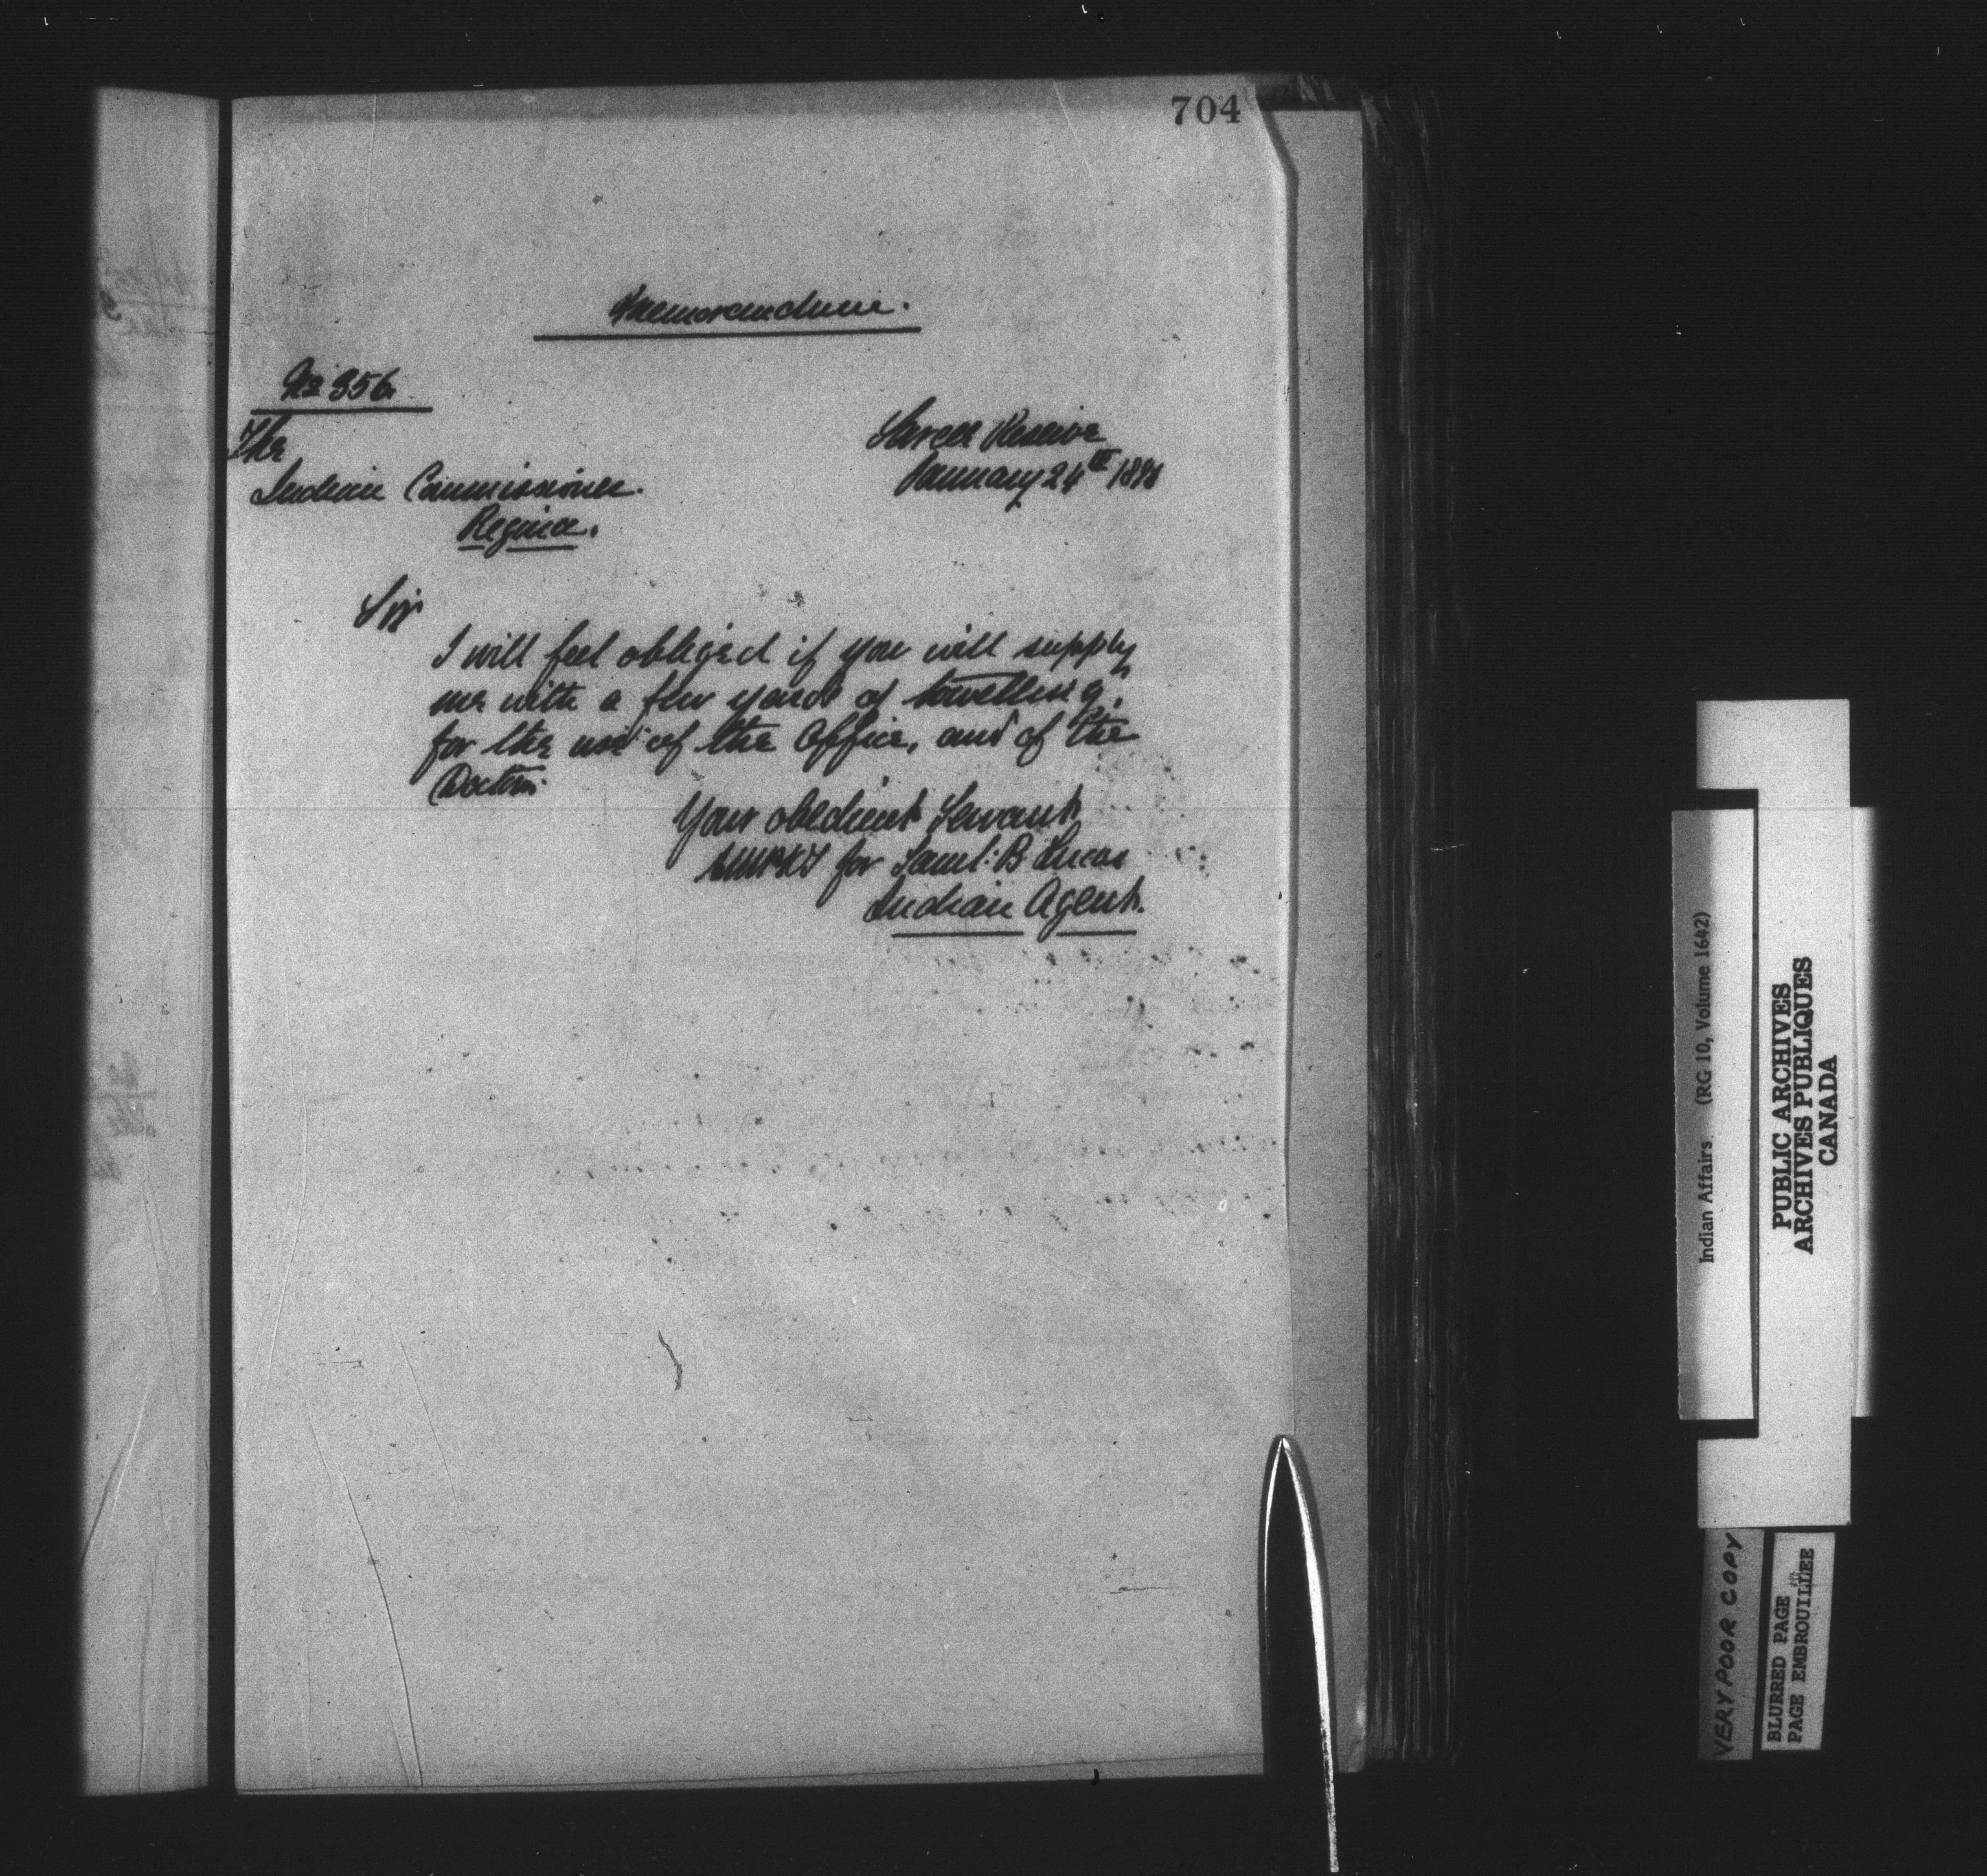 704
Memorandum.
No 356
The
Sarcee Reserve
January 24th 1891
Indian Commissioner.
Regina.
Sir
I will feel obliged if you will supply
me with a few yards of towelling,
for the use of the Office, and of the
Doctor.
Your obedient Servant
for Saml: B Lucas
Indian Agent.
Indian Affairs (RG 10, Volume 1642)
PUBLIC ARCHIVES
ARCHIVES PUBLIQUES
CANADA
VERY POOR COPY
BLURRED PAGE
PAGE EMBROUILLEE